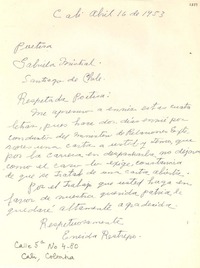 Cali Abril 16 de 1953
Poetisa
Gabriela Mistral
Santiago de Chile.
Respetada Poetisa:
Me apresuro a enviar este cuatro
letras, pues hace dos días envié por
conducto del Ministro de Relaciones Exte
riores una carta a usted y temo, que
por la carrera en despacharla no dejara
como el caso lo exige, constancia
de que se trataba de una carta abierta.
Por el trabajo que usted haga en
favor de nuestra querida patria, le
quedaré altamente agradecida
Respetuosamente
Eneida Restrepo.
Calle 5ª No 4-80
Cali, Colombia